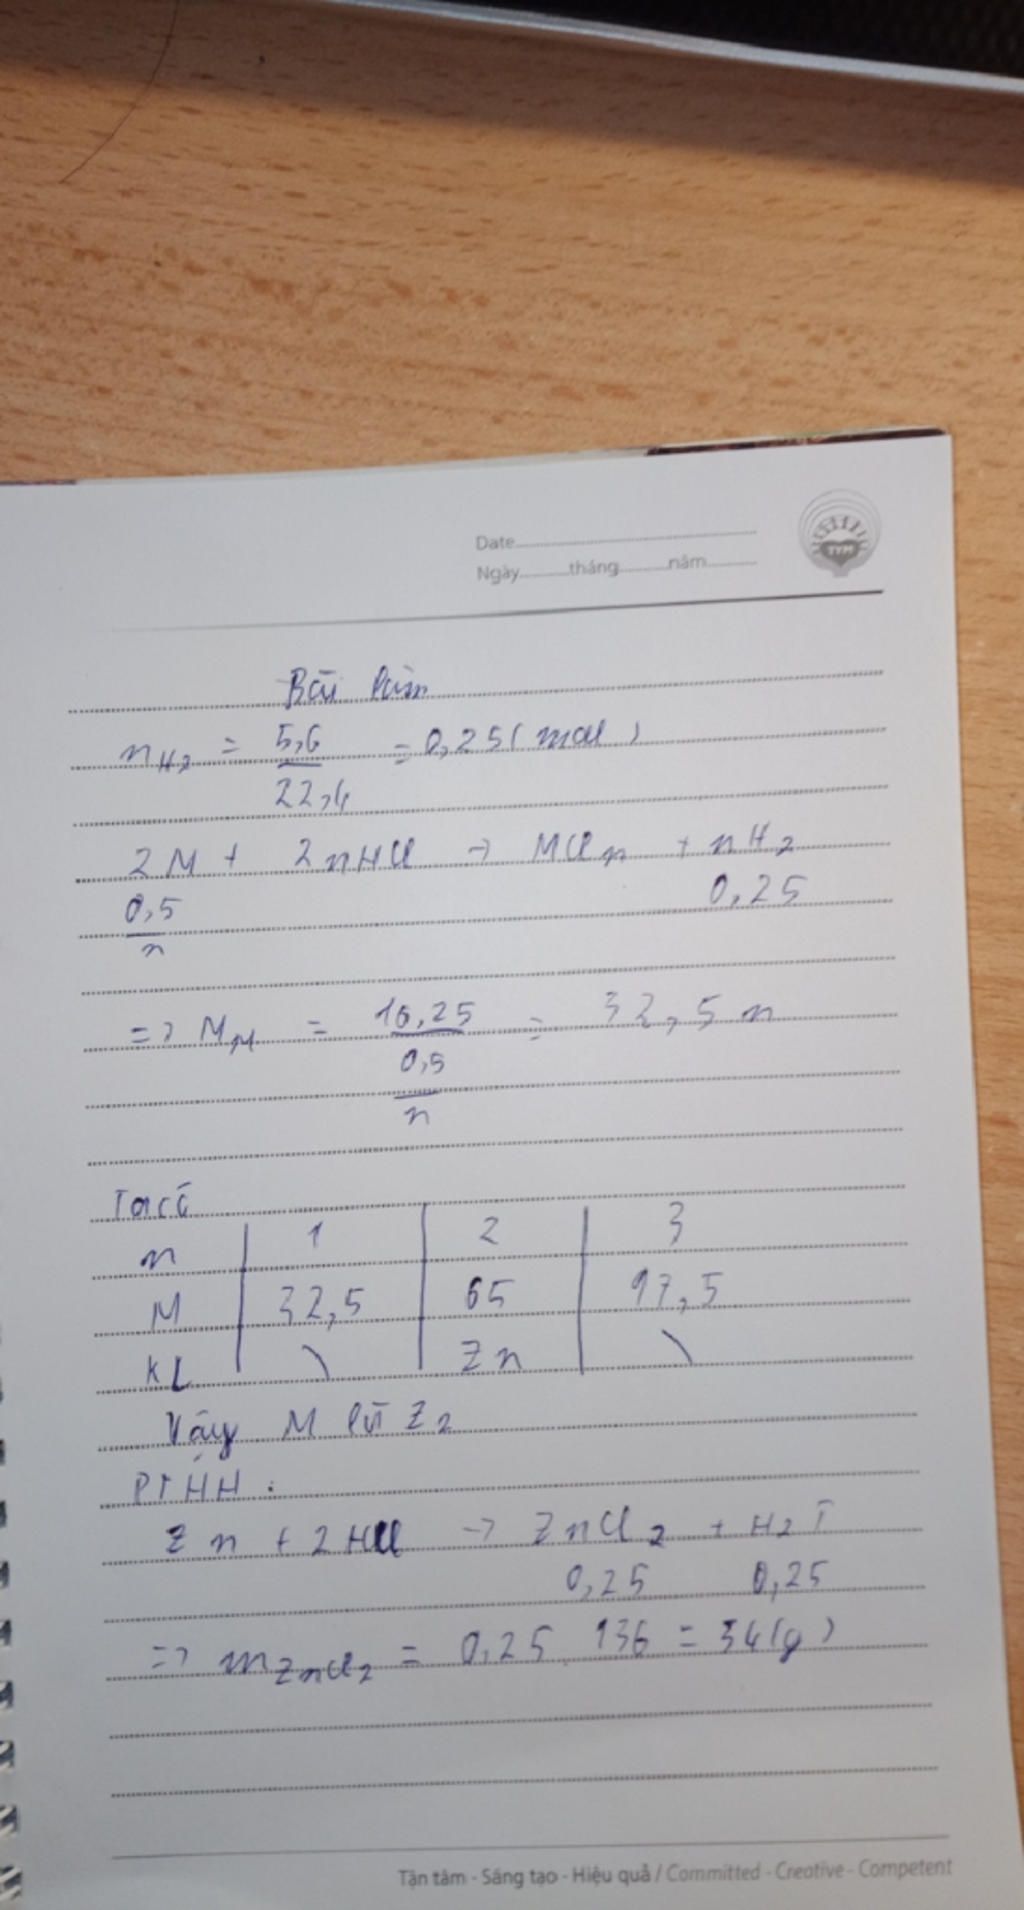 Date
Ngày tháng năm
TYM
Bài làm
nH2 = 5,6/22,4 = 0,25 (mol)
2M + 2nHCl → MCln + nH2
0,5/n 0,25
=> MM = 16,25/(0,5/n) = 32,5n
Ta có
n 1 2 3
M 32,5 65 97,5
KL \ Zn \
Vậy M là Z2
PTHH :
Zn + 2HCl → ZnCl2 + H2↑
0,25 0,25
=> mZnCl2 = 0,25 . 136 = 34 (g)
Tận tâm - Sáng tạo - Hiệu quả / Committed - Creative - Competent